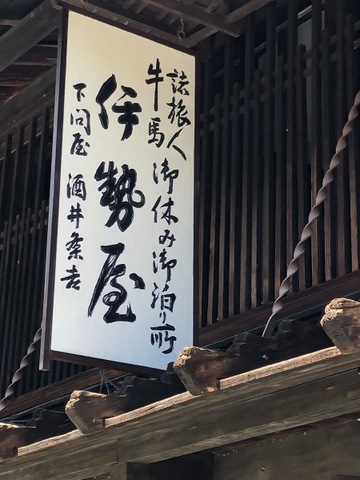 諸旅人
牛馬 御休み御泊り所
伊勢屋
下問屋 酒井粂吉